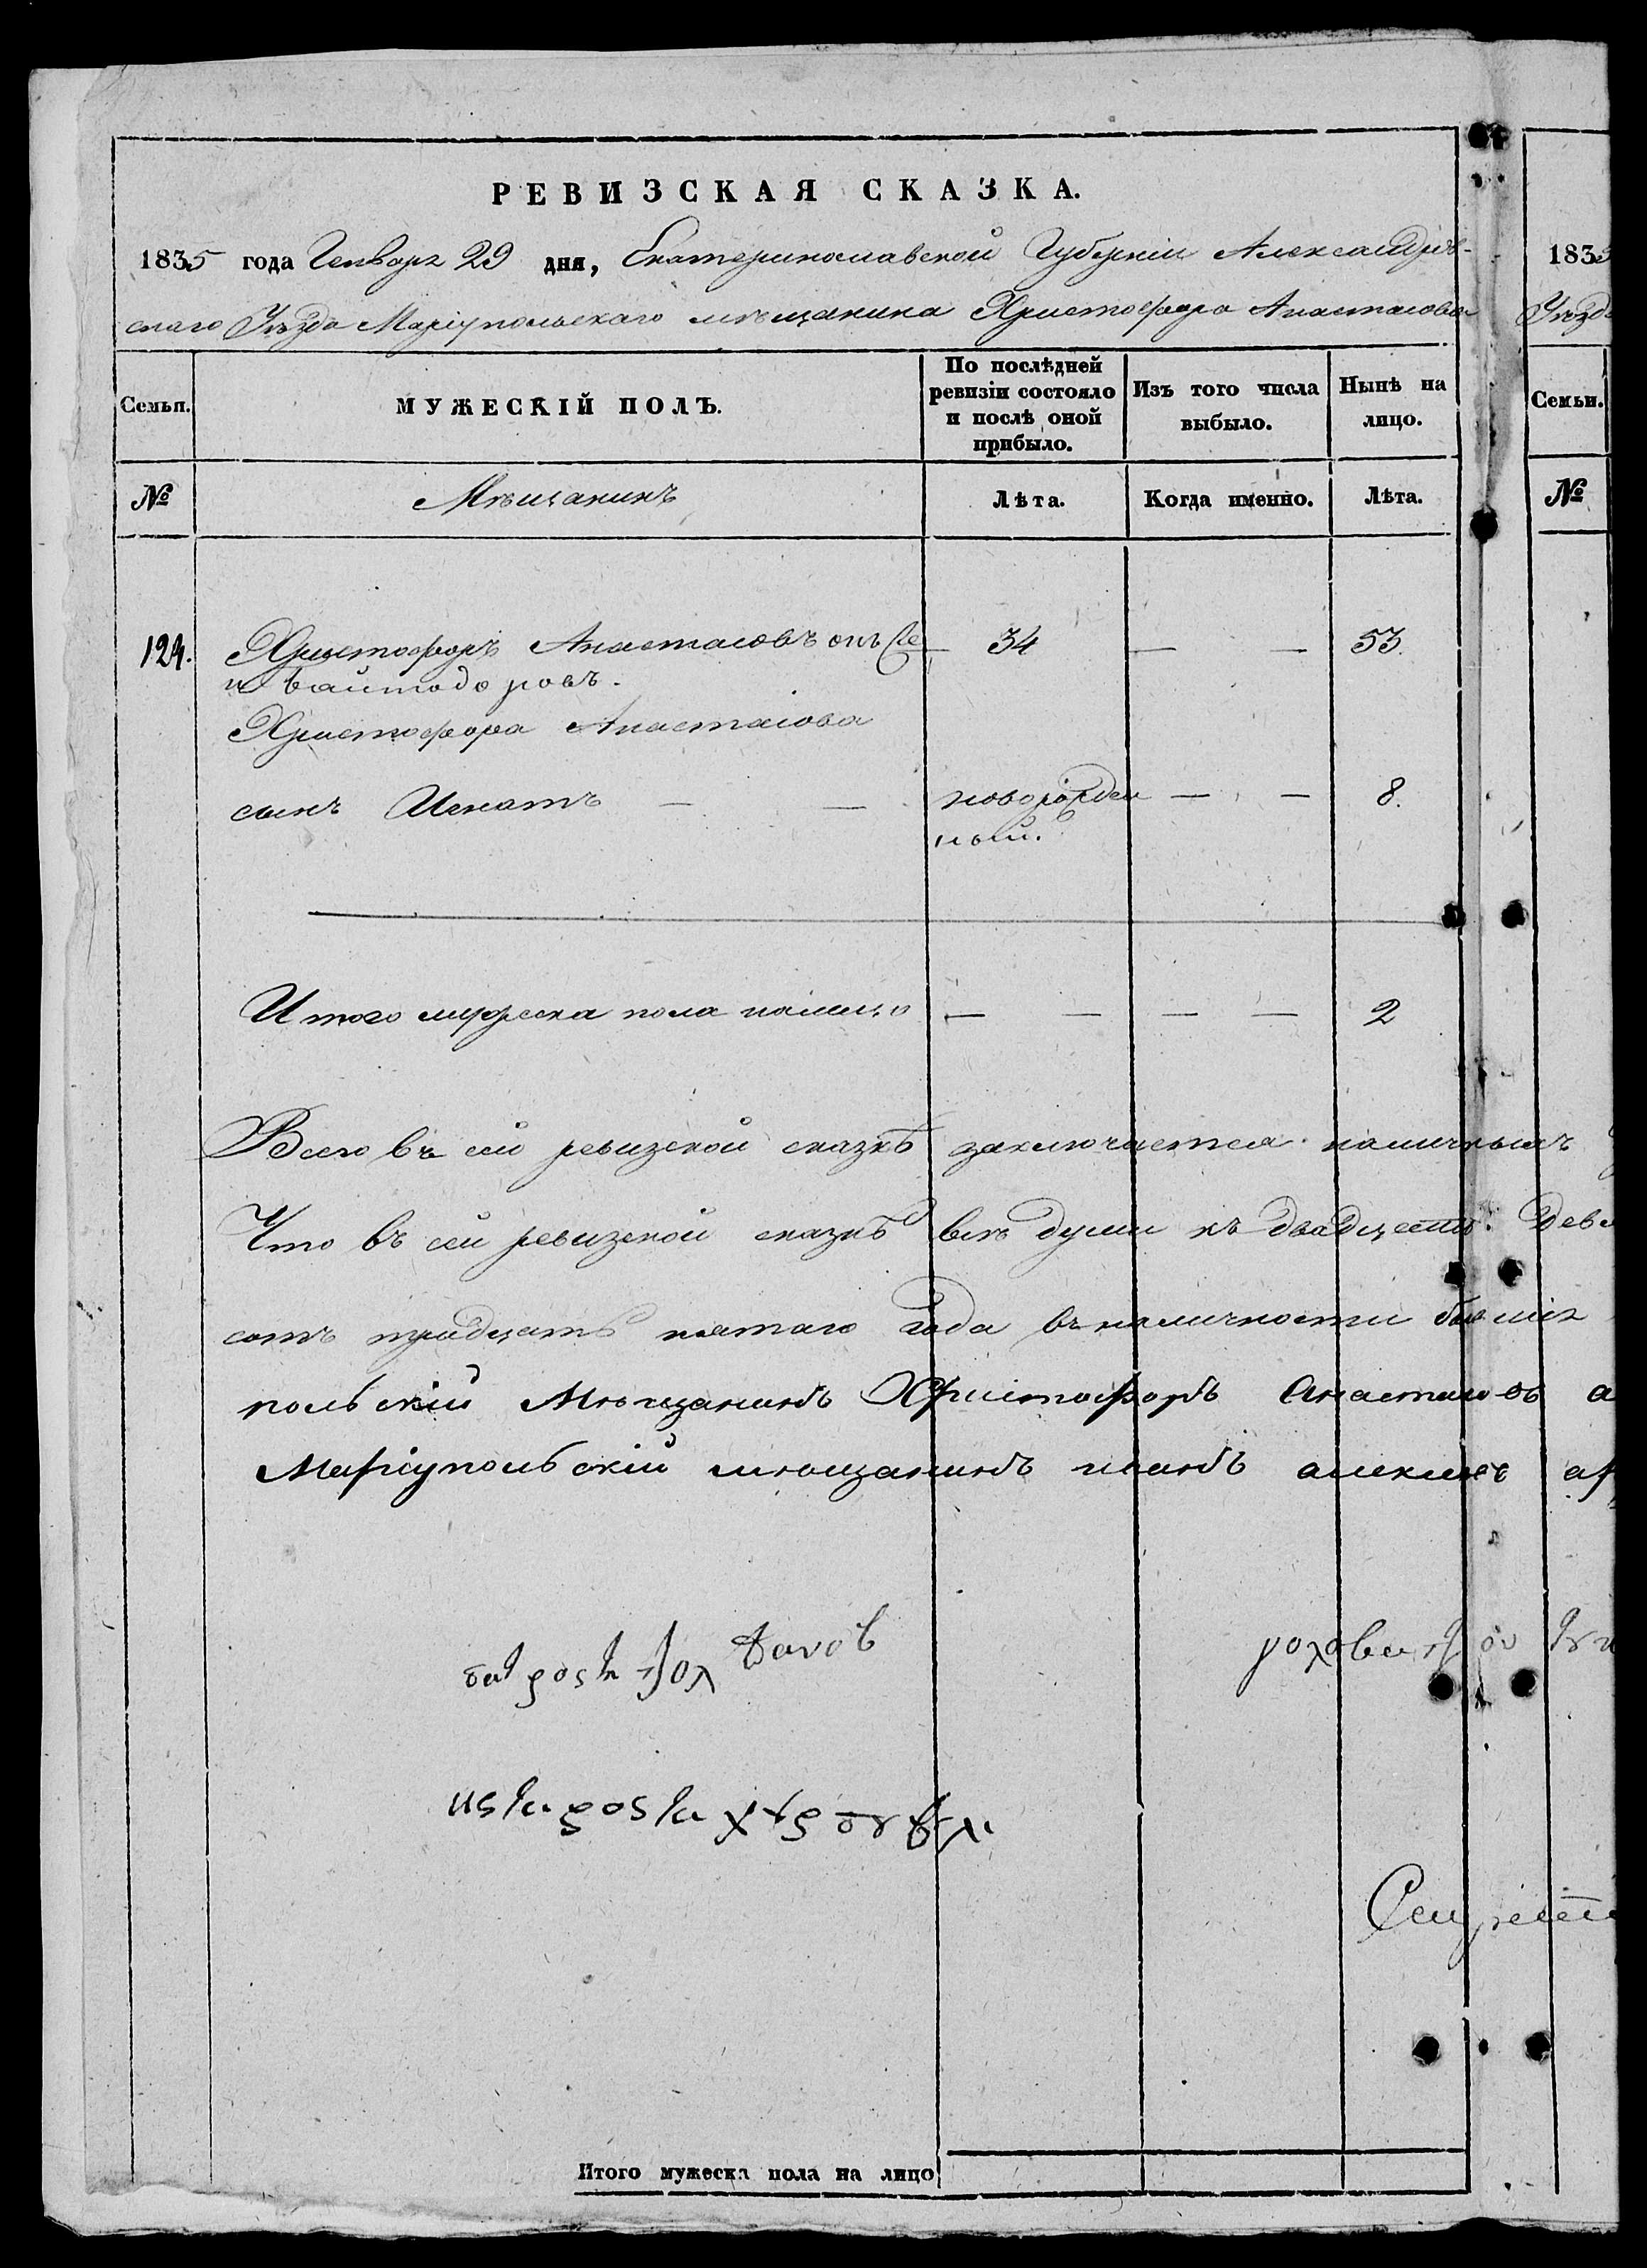 РЕВИЗСКАЯ СКАЗКА.
1835 года Генваря 29 дня, Екатеринославской Губерніи Александров-
скаго Уѣзда Маріупольскаго мѣщанина Христофора Анастасова
Семьи.
МУЖЕСКІЙ ПОЛЪ.
По послѣдней ревизіи состояло и послѣ оной прибыло.
Изъ того числа выбыло.
Нынѣ на лицо.
№
Мѣщанинъ
Лѣта.
Когда именно.
Лѣта.
124. Христофоръ Анастасовъ онъ же — 34 — — 53.
и Байтодоровъ.
Христофора Анастасова
сынъ Игнатъ — — новорожден — — 8.
ный.
Итого мужеска пола налицо — — — — 2
Всего въ сей ревизской сказкѣ заключается наличныхъ
Что въ сей ревизской сказкѣ всѣ души къ двадцать девя
сотъ тридцать пятаго года въ наличности бывшіе
польскій Мѣщанинъ Христофоръ Анастасовъ а
Маріупольскій мѣщанинъ
Итого мужеска пола на лицо
1835
Уѣзд
Семьи.
№